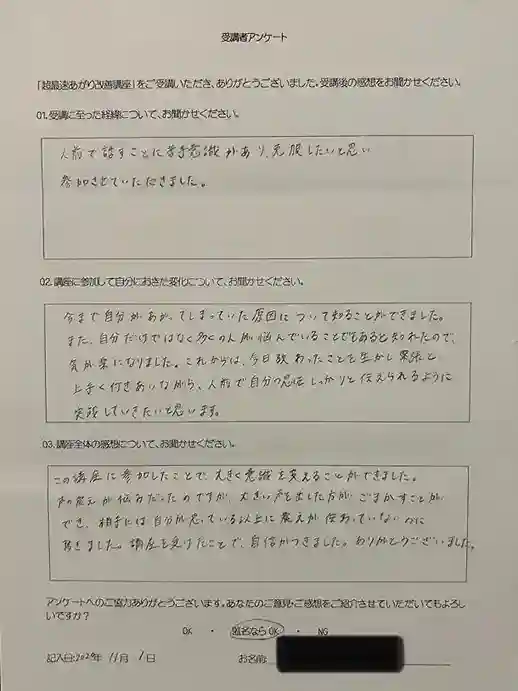 受講者アンケート
「超最速あがり改善講座」をご受講いただき、ありがとうございました。受講後の感想をお聞かせください。
01.受講に至った経緯について、お聞かせください。
人前で話すことに苦手意識があり、克服したいと思い
参加させていただきました。
02.講座に参加して自分におきた変化について、お聞かせください。
今まで自分があがってしまっていた原因について知ることができました。
また、自分だけではなく多くの人が悩んでいることでもあると知れたので、
気が楽になりました。これからは、今日教わったことを生かし緊張と
上手く付きあいながら、人前で自分の思いをしっかりと伝えられるように
実践していきたいと思います。
03.講座全体の感想について、お聞かせください。
この講座に参加したことで、大きく意識を変えることができました。
声の震えが悩みだったのですが、大きい声を出した方がごまかすことが
でき、相手には自分が思っている以上に震えが伝わっていないのに
驚きました。講座を受けたことで、自信がつきました。ありがとうございました。
アンケートへのご協力ありがとうございます。あなたのご意見・ご感想をご紹介させていただいてもよろし
いですか?
OK ・ 匿名ならOK ・ NG
記入日:2024年 11月 1日 お名前: